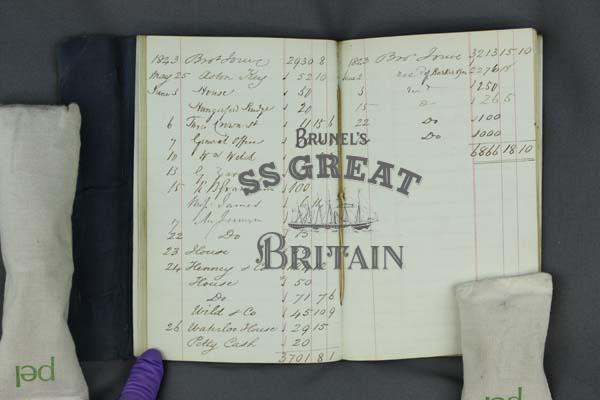 1843 Brot Forwd 2930 8
May 25 Aston Key " 52 10
June 5 House " 50
Hungerford Bridge " 20
6 " 11 15 6
7 General Office
10 Wm Weld
13
15 100
Messrs James
9
22 Do " 15
23 House
24 Henney & Co
House " 50
Do " 71 7 6
Wild & Co " 45 10 9
26 Waterloo House " 29 15
Petty Cash " 20
3701 8 1
1843 Brot Forwd 3213 15 10
June 2 2276 18
5 " 250
15 Do " 26 5
22 Do " 100
Do 1000
6866 18 10
BRUNEL'S
SS GREAT
BRITAIN
pel
pel